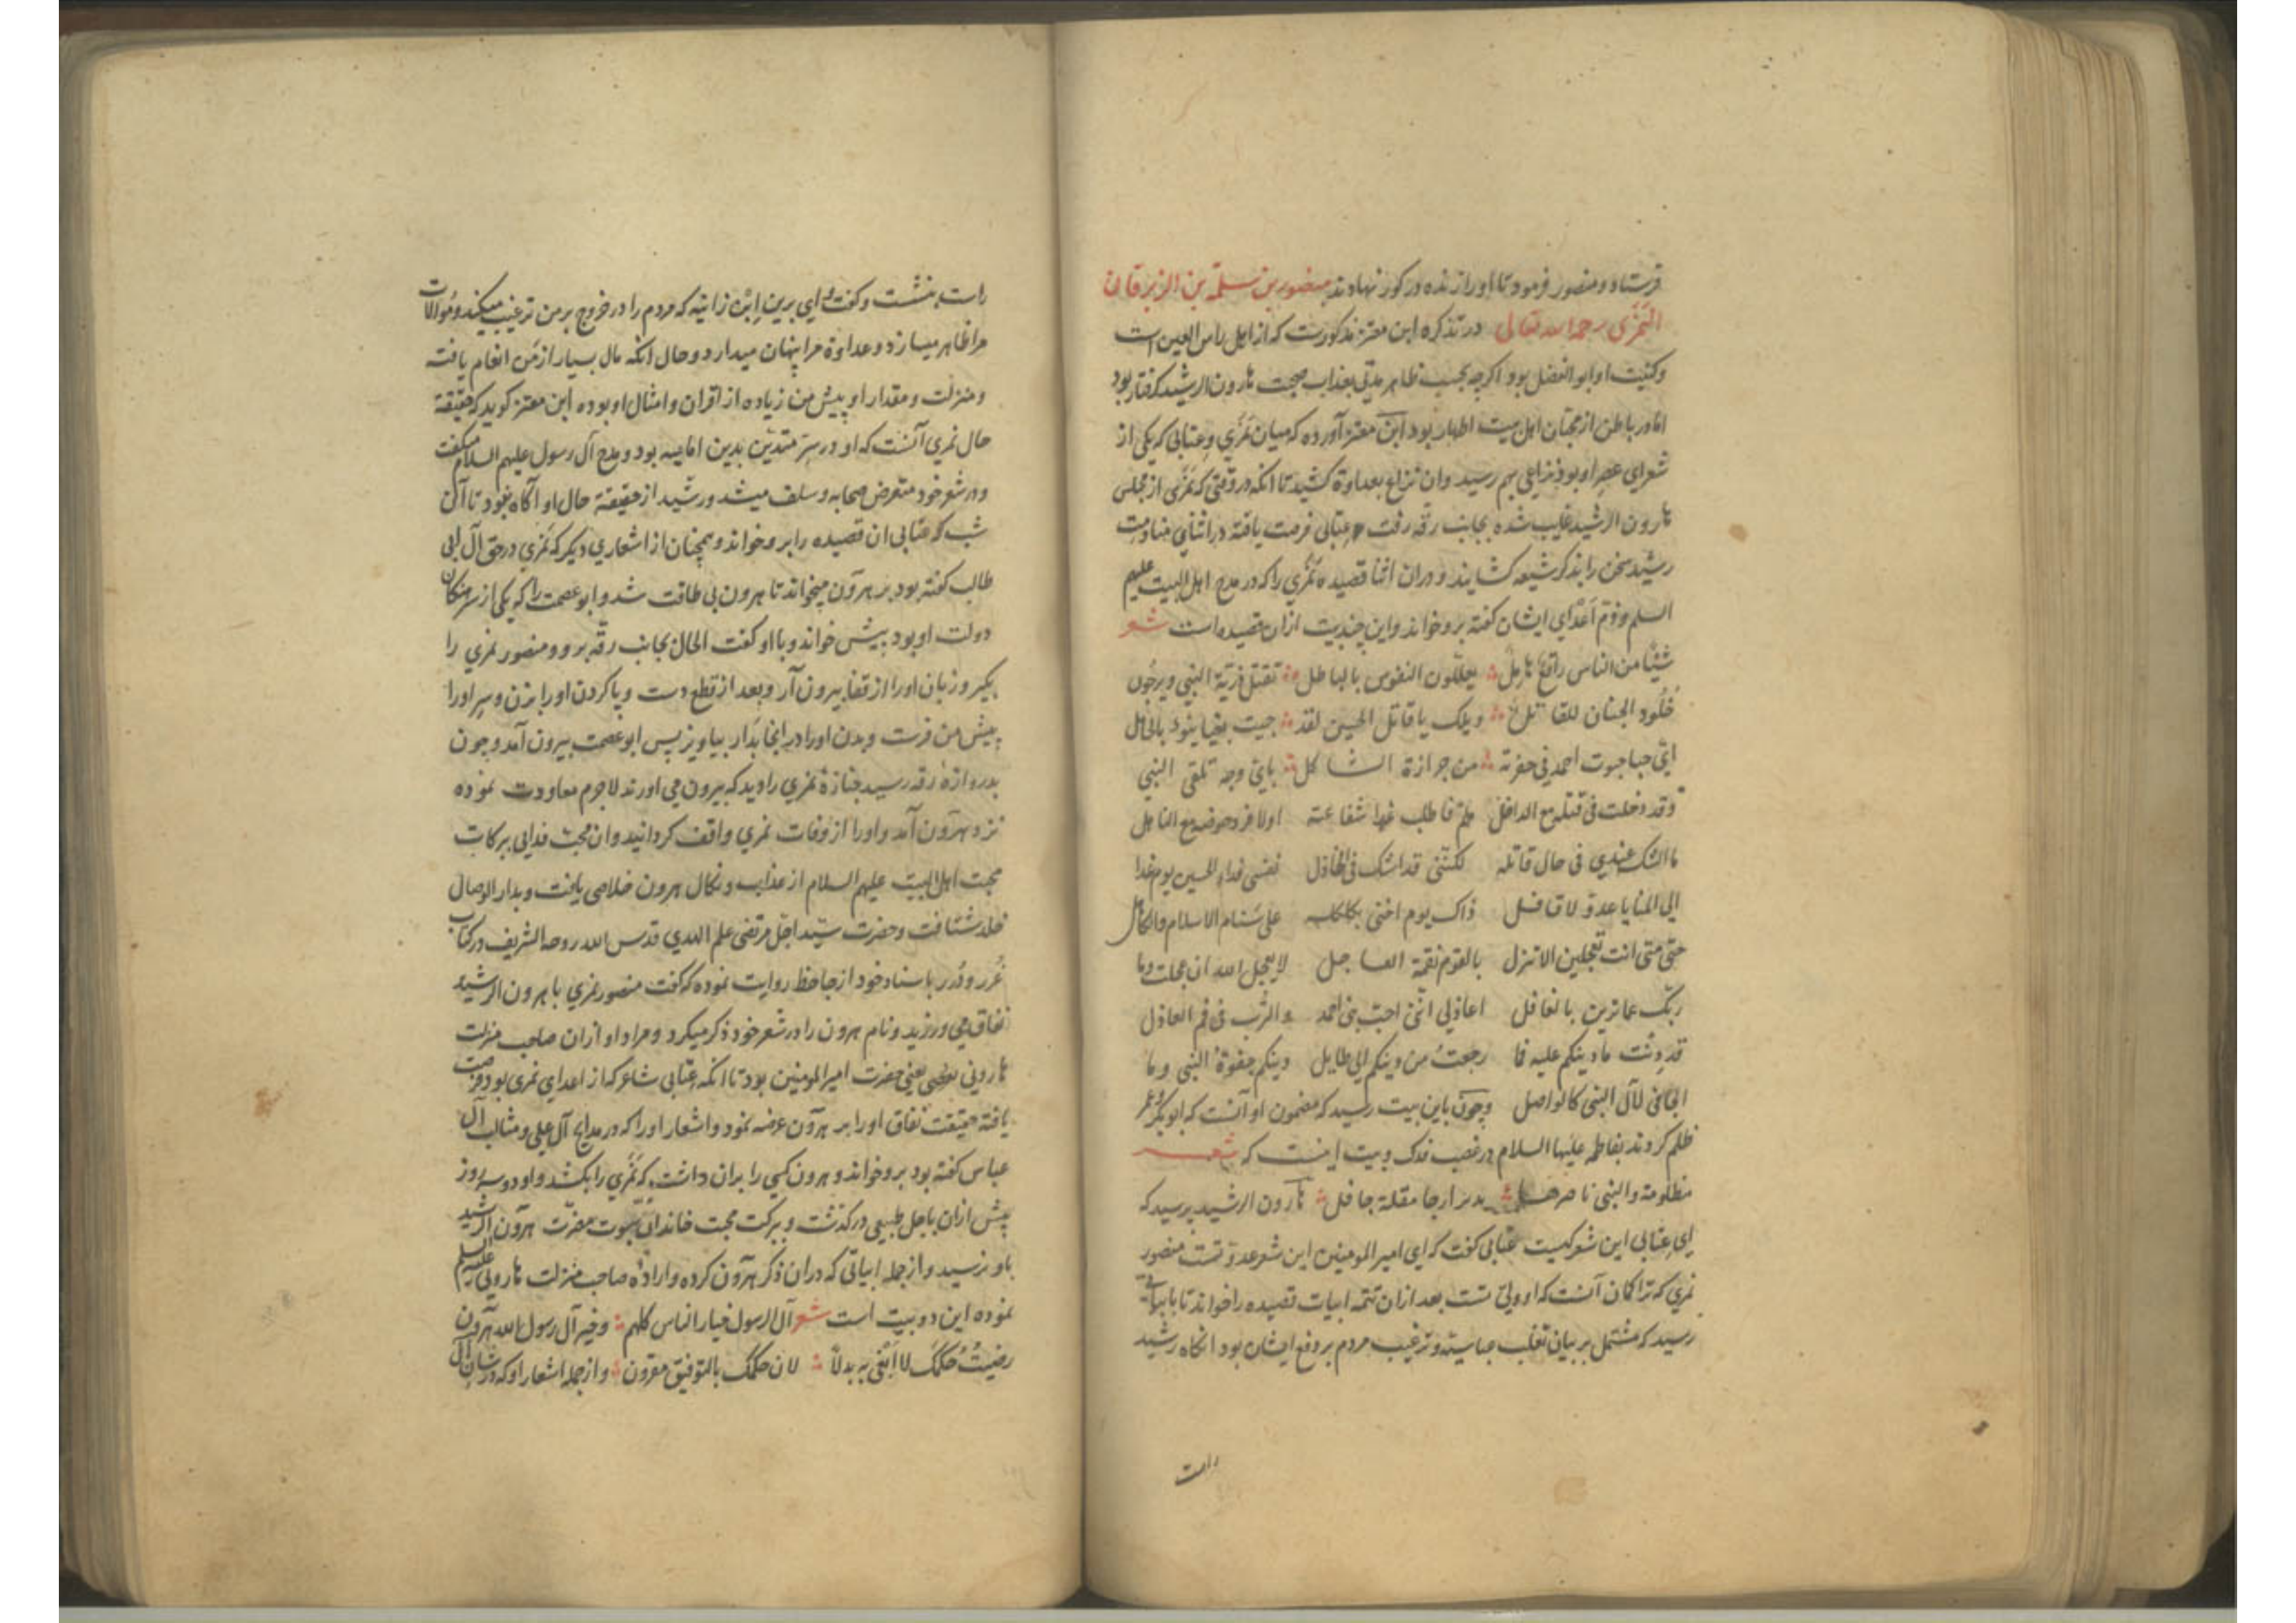 فرستاد و منصور فرمود تا او را زنده در کور نهادند منصور بن سلمة بن الزبرقان
النمری رحمه الله تعالی در تذکره ابن معتز مذکورست که از اهل راس العین است
وکنیت او ابو الفضل بود اکرچه بحسب ظاهر مدتی بعذاب صحبت هارون الرشید کرفتار بود
اما در باطن از محبان اهل بیت اطهار بود ابن معتز آورده که میان نمری و عتابی که یکی از
شعرای عصر او بود نزاعی بهم رسید وان نزاع بعداوة کشید تا انکه در وقتی که نمری از مجلس
هارون الرشید غایب شده بجانب رقه رفت عتابی فرصت یافته در اثنای منادمت
رشید سخن را بذکر شیعه کشانید و دران اثنا قصیده نمری را که در مدح اهل البیت علیهم
السلم و ذم اعدای ایشان کفته بر وخواند واین چند بیت ازان قصیده است شعر
شیئا من الناس راتع هامل یعللون النفوس بالباطل تقتل ذریة النبی ویرجون
خلود الجنان للقاتل ویلک یا قاتل الحسین لقد جیت بعبا ینوء بالحامل
ای حبا حبوت احمد فی حفرته من حرازة الثاکل بای وجه تلقی النبی
وقد دخلت فی قتله مع الداخل هلم فاطلب غدا شفاعته اولا فرد حوضه مع الناهل
ما الشک عندی فی حال قاتله لکننی قد اشک فی الخاذل نفسی فداء الحسین یوم غدا
الی المنایا غدو لا قافل ذاک یوم اخنی بکلکله علی سنام الاسلام والکاهل
حتی متی انت تعجلین الا تنزل بالقوم نقمة العاجل لا یعجل الله ان عجلت وما
ربک عما ترین بالغافل اعاذلی اننی احب بنی احمد والترب فی فم العاذل
قد دنت ما دینکم علیه فما رجعت من دینکم الی طایل دینکم جفوة النبی وما
الجافی لآل النبی کالواصل وچون باین بیت رسید که مضمون او آنست که ابو بکر و عمر
ظلم کردند بفاطمه علیها السلام در غصب فدک وبیت اینست که شعر
مظلومة والنبی ناصرها یدیر ارجا مقلة حافل هارون الرشید پرسید که
ای عتابی این شعر کیست عتابی کفت که ای امیر المومنین این شعر عدو تست منصور
نمری که ترا کمان آنست که او ولی تست بعد ازان تتمه ابیات قصیده را خواند تا بابیاتی
رسید که مشتمل بر بیان تغلب عباسیه و ترغیب مردم بر دفع ایشان بود انکاه رشید
راست
راست بنشست وکفت وای برین ابن زانیه که مردم را در خروج بر من ترغیب میکند و موالات
مرا ظاهر میسازد و عداوة مرا پنهان میدارد و حال انکه مال بسیار از من انعام یافته
ومنزلت و مقدار او پیش من زیاده از اقران و امثال او بوده ابن معتز کوید که حقیقة
حال نمری آنست که او در سر متدین بدین امامیه بود و مدح آل رسول علیهم السلام میکفت
و در شعر خود متعرض صحابه و سلف میشد و رشید از حقیقة حال او آکاه نبود تا آن
شب که عتابی ان قصیده را بر و خواند و همچنان از اشعاری دیکر که نمری در حق آل ابی
طالب کفته بود بر هرون میخواند تا هرون بی طاقت شد و ابو عصمت را که یکی از سرهنکان
دولت او بود پیش خواند و با او کفت الحال بجانب رقه برو و منصور نمری را
بکیر و زبان او را از قفا بیرون آر و بعد از قطع دست و پا کردن او را بزن و سر او را
پیش من فرست و بدن او را در انجا بدار بیاویز پس ابو عصمت بیرون آمد و چون
بدروازه رقه رسید جنازهٔ نمری را دید که بیرون می اورند لاجرم معاودت نموده
نزد هرون آمد و او را از وفات نمری واقف کردانید و ان محب فدایی ببرکات
محبت اهل البیت علیهم السلام از عذاب و نکال هرون خلاصی یافت و بدار الوصال
خلد شتافت و حضرت سید اجل مرتضی علم الهدی قدس الله روحه الشریف در کتاب
غرر و درر باسناد خود از جاحظ روایت نموده که کفت منصور نمری با هرون الرشید
نفاق می ورزید و نام هرون را در شعر خود ذکر میکرد و مراد او ازان صاحب منزلت
هارونی یعنی حضرت امیر المومنین بود تا انکه عتابی شاعر که از اعدای نمری بود فرصت
یافته حقیقت نفاق او را بر هرون عرضه نمود و اشعار او را که در مدایح آل علی و مثالب آل
عباس کفته بود بر و خواند و هرون کسی را بران داشت که نمری را بکشد و او دو سه روز
پیش ازان باجل طبیعی درکذشت و ببرکت محبت خاندان نبوت مضرت هرون الرشید
باو نرسید و از جمله ابیاتی که دران ذکر هرون کرده و اراده صاحب منزلت هارونی علیه السلم
نموده این دو بیت است شعر آل الرسول خیار الناس کلهم وخیر آل رسول الله هرون
رضیت حکمک لا ابغی به بدلا لان حکمک بالتوفیق مقرون و از جمله اشعار او که در شان آل